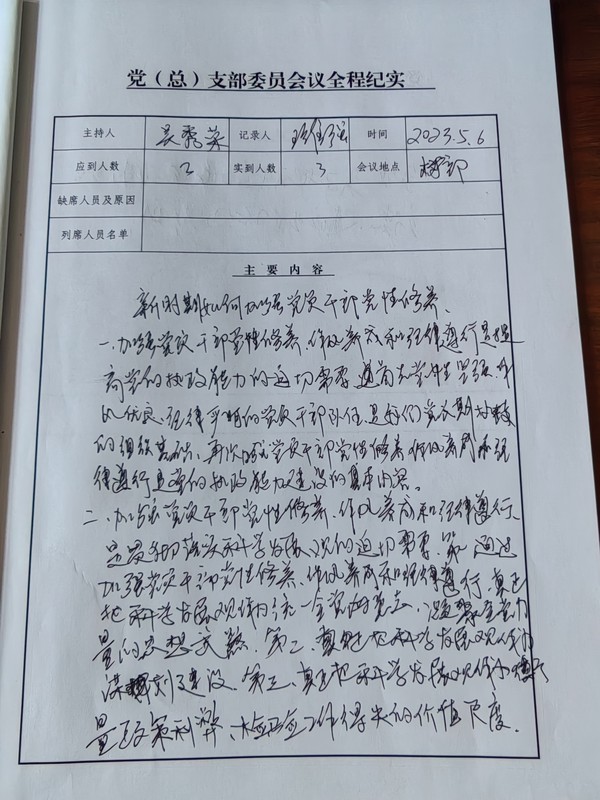 党（总）支部委员会议全程纪实
主持人 吴秀英 记录人 时间 2023.5.6
应到人数 3 实到人数 3 会议地点 村部
缺席人员及原因
列席人员名单
主要内容
新时期如何加强党员干部党性修养、
一、加强党员干部党性修养、作风养成和纪律遵行是提
高党的执政能力的迫切需要，首先党性坚强、作
风优良、纪律严明的党员干部队伍，是我们党长期执政
的组织基础，再次加强党员干部党性修养、作风养成和纪
律遵行是党的执政能力建设的基本内容。
二、加强党员干部党性修养、作风养成和纪律遵行、
是深切落实科学发展观的迫切需要。第一、通过
加强党员干部党性修养、作风养成和纪律遵行，真正
把科学发展观作为统一全党的意志、凝聚全党力
量的思想武器、第二、真正把科学发展观作为
谋划建设、第三、真正把科学发展观作为衡
量政策利弊、检验工作得失的价值尺度。